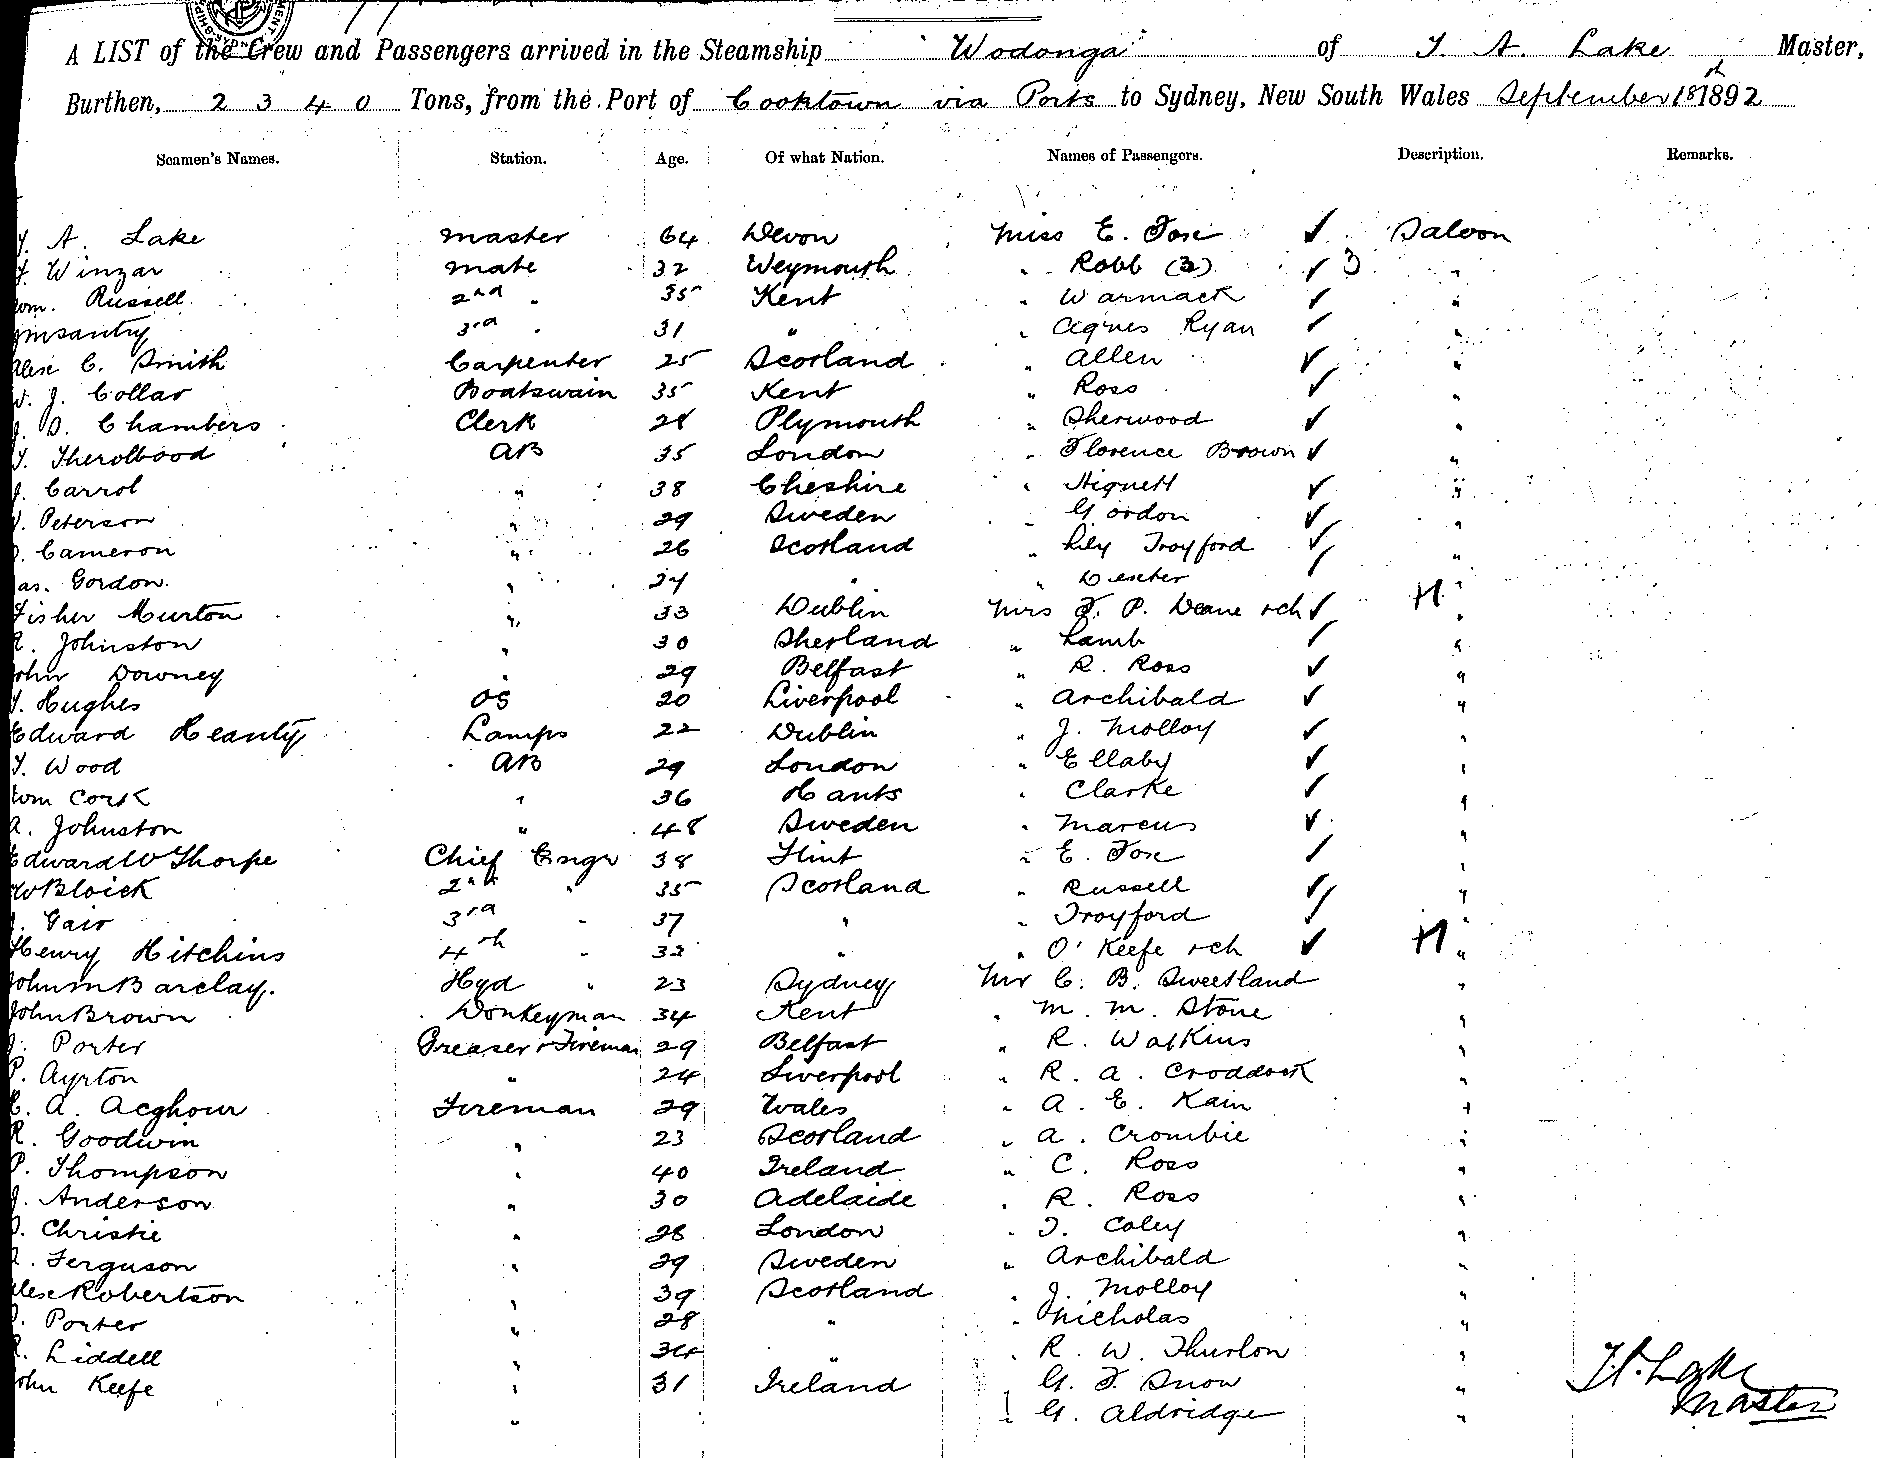 A LIST of the Crew and Passengers arrived in the Steamship "Wodonga" of T. A. Lake Master,
Burthen, 2340 Tons, from the Port of Cooktown via Ports to Sydney, New South Wales September 18th 1892
Seamen's Names. Station. Age. Of what Nation. Names of Passengers. Description. Remarks.
T. A. Lake master 64 Devon Miss E. Fox ✓ Saloon
Winzar mate 32 Weymouth " Robb (3) ✓ 3 "
Wm. Russell 2nd " 35 Kent " Warmack ✓ "
3rd " 31 " " Agnes Ryan ✓ "
Alex C. Smith Carpenter 25 Scotland " Allen ✓ "
W. J. Collar Boatswain 35 Kent " Ross ✓ "
J. Chambers Clerk 28 Plymouth " Sherwood ✓ "
AB 35 London " Florence Brown ✓ "
J. Carrol " 38 Cheshire " Hignett ✓ "
Peterson " 29 Sweden " Gordon ✓ "
Cameron " 26 Scotland " Lily Troyford ✓ "
Jas. Gordon " 24 " " ✓ "
Fisher Murton " 33 Dublin Mrs F. P. Deane & ch ✓ "
Johnston " 30 Shetland " Lamb ✓ "
John Downey " 29 Belfast " R. Ross ✓ "
T. Hughes OS 20 Liverpool " Archibald ✓ "
Edward Heanty Lamps 22 Dublin " J. Molloy ✓ "
T. Wood AB 29 London " Ellaby ✓ "
Wm Cork " 36 Hants " Clarke ✓ "
A. Johnston " 48 Sweden " Marcus ✓ "
Edward W Thorpe Chief Engr 38 Flint " E. Fox ✓ "
W Bloick 2nd " 35 Scotland " Russell ✓ "
Gair 3rd " 37 " " Troyford ✓ "
Henry Hitchins 4th " 32 " " O'Keefe & ch ✓ "
John M Barclay. Hyd " 23 Sydney Mr C. B. Sweetland "
John Brown Donkeyman 34 Kent " M. M. Stone "
J. Porter Greaser & Fireman 29 Belfast " R. Watkins "
P. Ayrton " 24 Liverpool " R. A. Croddock "
A. Acghour Fireman 29 Wales " A. E. Kain "
R. Goodwin " 23 Scotland " A. Crombie "
P. Thompson " 40 Ireland " C. Ross "
J. Anderson " 30 Adelaide " R. Ross "
Christie " 28 London " Coley "
Ferguson " 29 Sweden " Archibald "
Alex Robertson " 39 Scotland " J. Molloy "
Porter " 28 " " Nicholas "
R. Liddell " 34 " " R. W. Thurlon "
John Keefe " 31 Ireland " G. F. Snow "
" " G. Aldridge "
T. A. Lake
Master